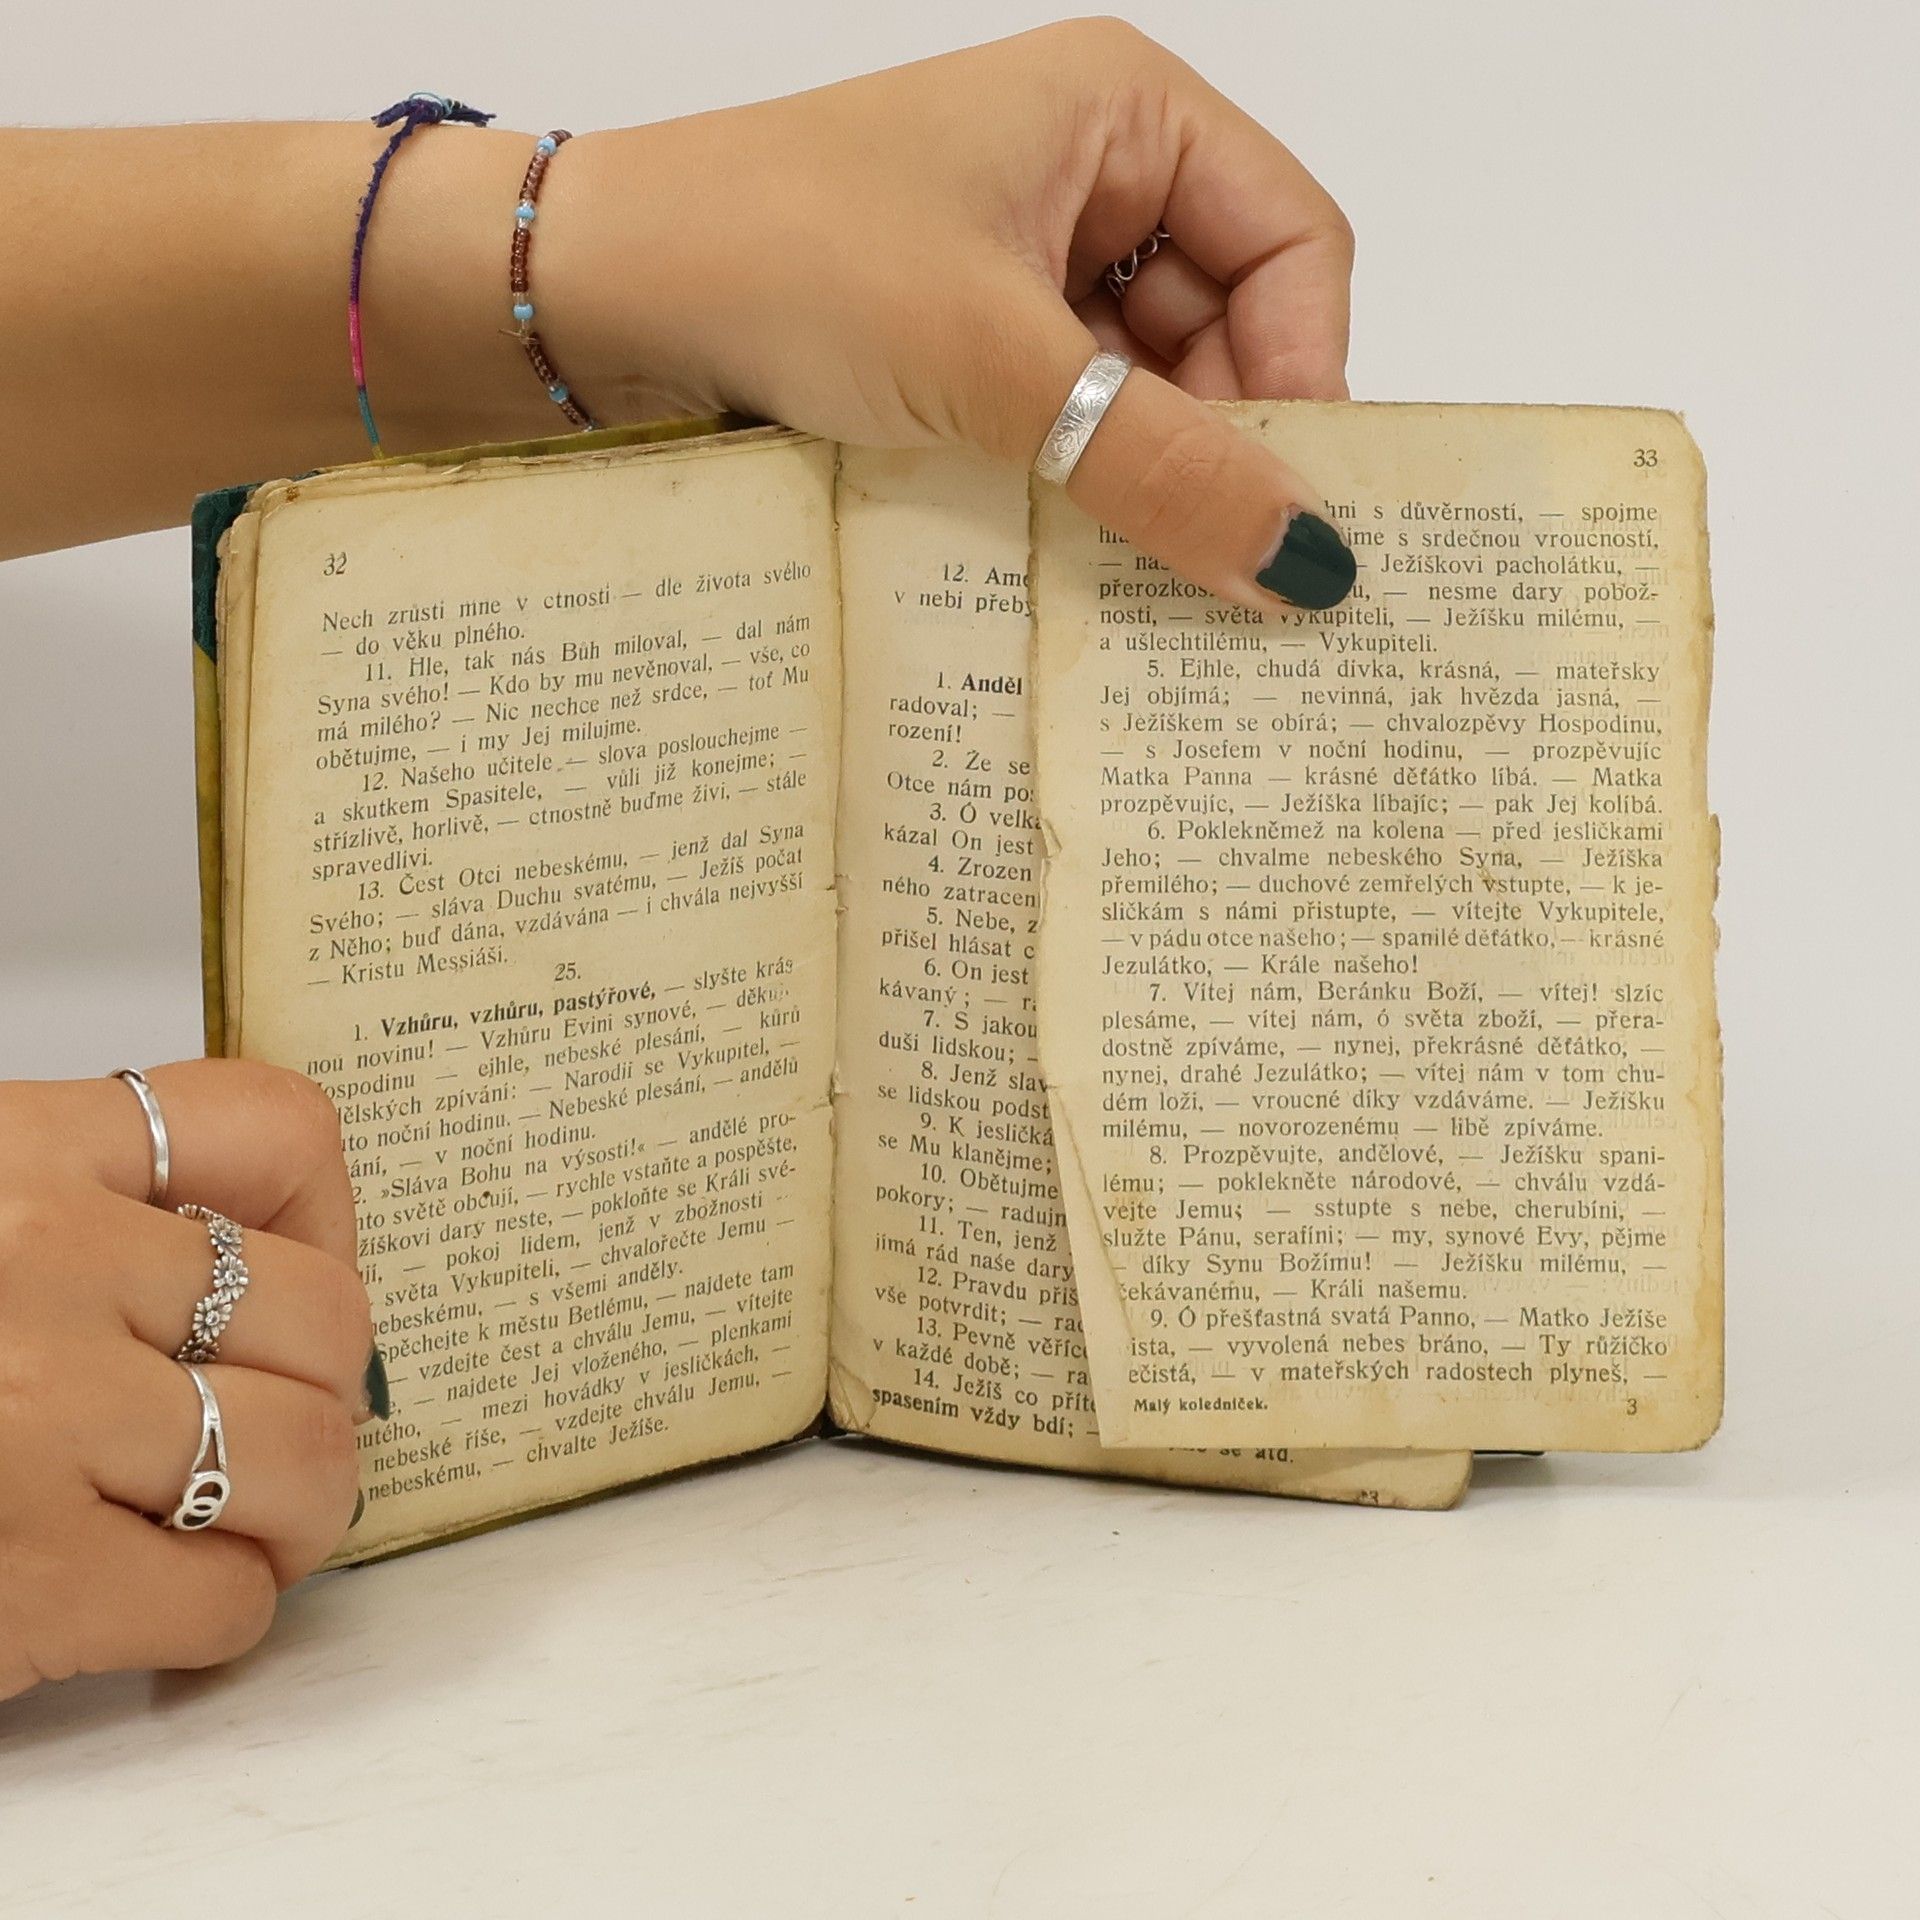 32
Nech zrůsti mne v ctnosti — dle života svého
— do věku plného.
11. Hle, tak nás Bůh miloval, — dal nám
Syna svého! — Kdo by mu nevěnoval, — vše, co
má milého? — Nic nechce než srdce, — toť Mu
obětujme, — i my Jej milujme.
12. Našeho učitele — slova poslouchejme —
a skutkem Spasitele, — vůli již konejme; —
střízlivě, horlivě, — ctnostně buďme živi, — stále
spravedlivi.
13. Čest Otci nebeskému, — jenž dal Syna
Svého; — sláva Duchu svatému, — Ježíš počat
z Něho; buď dána, vzdávána — i chvála nejvyšší
— Kristu Messiáši.
25.
1. Vzhůru, vzhůru, pastýřové, — slyšte krás
nou novinu! — Vzhůru Evini synové, —
— ejhle, nebeské plesání, — kůrů
zpívání: — Narodil se Vykupitel, —
noční hodinu. — Nebeské plesání, — andělů
— v noční hodinu.
»Sláva Bohu na výsosti!« — andělé pro-
světě obcují, — rychle vstaňte a pospěšte,
dary neste, — pokloňte se Králi své-
— pokoj lidem, jenž v zbožnosti
— světa Vykupiteli, — chvalořečte Jemu —
— s všemi anděly.
Spěchejte k městu Betlému, — najdete tam
— vzdejte čest a chválu Jemu, — vítejte
— najdete Jej vloženého, — plenkami
— mezi hovádky v jesličkách, —
nebeské říše, — vzdejte chválu Jemu, —
nebeskému, — chvalte Ježíše.
12.
v nebi
1. Anděl
radoval; —
rození!
2. Že se
Otce nám
3. Ó
kázal On jest
4. Zrozen
ného
5. Nebe,
přišel hlásat
6. On jest
kávaný; —
7. S jakou
duši lidskou; —
8. Jenž
se lidskou
9. K
se Mu klanějme;
10. Obětujme
pokory; —
11. Ten, jenž
jímá rád naše dary
12. Pravdu
vše potvrdit; —
13. Pevně
v každé době; —
14. Ježíš co
spasením vždy bdí; —
se atd.
33
s důvěrností, — spojme
s srdečnou vroucností,
— Ježíškovi pacholátku, —
— nesme dary pobož-
nosti, — světa Vykupiteli, — Ježíšku milému, —
a ušlechtilému, — Vykupiteli.
5. Ejhle, chudá dívka, krásná, — mateřsky
Jej objímá; — nevinná, jak hvězda jasná, —
s Ježíškem se obírá; — chvalozpěvy Hospodinu,
— s Josefem v noční hodinu, — prozpěvujíc
Matka Panna — krásné děťátko líbá. — Matka
prozpěvujíc, — Ježíška líbajíc; — pak Jej kolíbá.
6. Poklekněmež na kolena — před jesličkami
Jeho; — chvalme nebeského Syna, — Ježíška
přemilého; — duchové zemřelých vstupte, — k je-
sličkám s námi přistupte, — vítejte Vykupitele,
— v pádu otce našeho; — spanilé děťátko, — krásné
Jezulátko, — Krále našeho!
7. Vítej nám, Beránku Boží, — vítej! slzíc
plesáme, — vítej nám, ó světa zboží, — přera-
dostně zpíváme, — nynej, překrásné děťátko, —
nynej, drahé Jezulátko; — vítej nám v tom chu-
dém loži, — vroucné díky vzdáváme. — Ježíšku
milému, — novorozenému — libě zpíváme.
8. Prozpěvujte, andělové, — Ježíšku spani-
lému; — poklekněte národové, — chválu vzdá-
vejte Jemu; — sstupte s nebe, cherubíni, —
služte Pánu, serafíni; — my, synové Evy, pějme
— díky Synu Božímu! — Ježíšku milému, —
čekávanému, — Králi našemu.
9. Ó přešťastná svatá Panno, — Matko Ježíše
— vyvolená nebes bráno, — Ty růžičko
— v mateřských radostech plyneš, —
Malý koledníček. 3